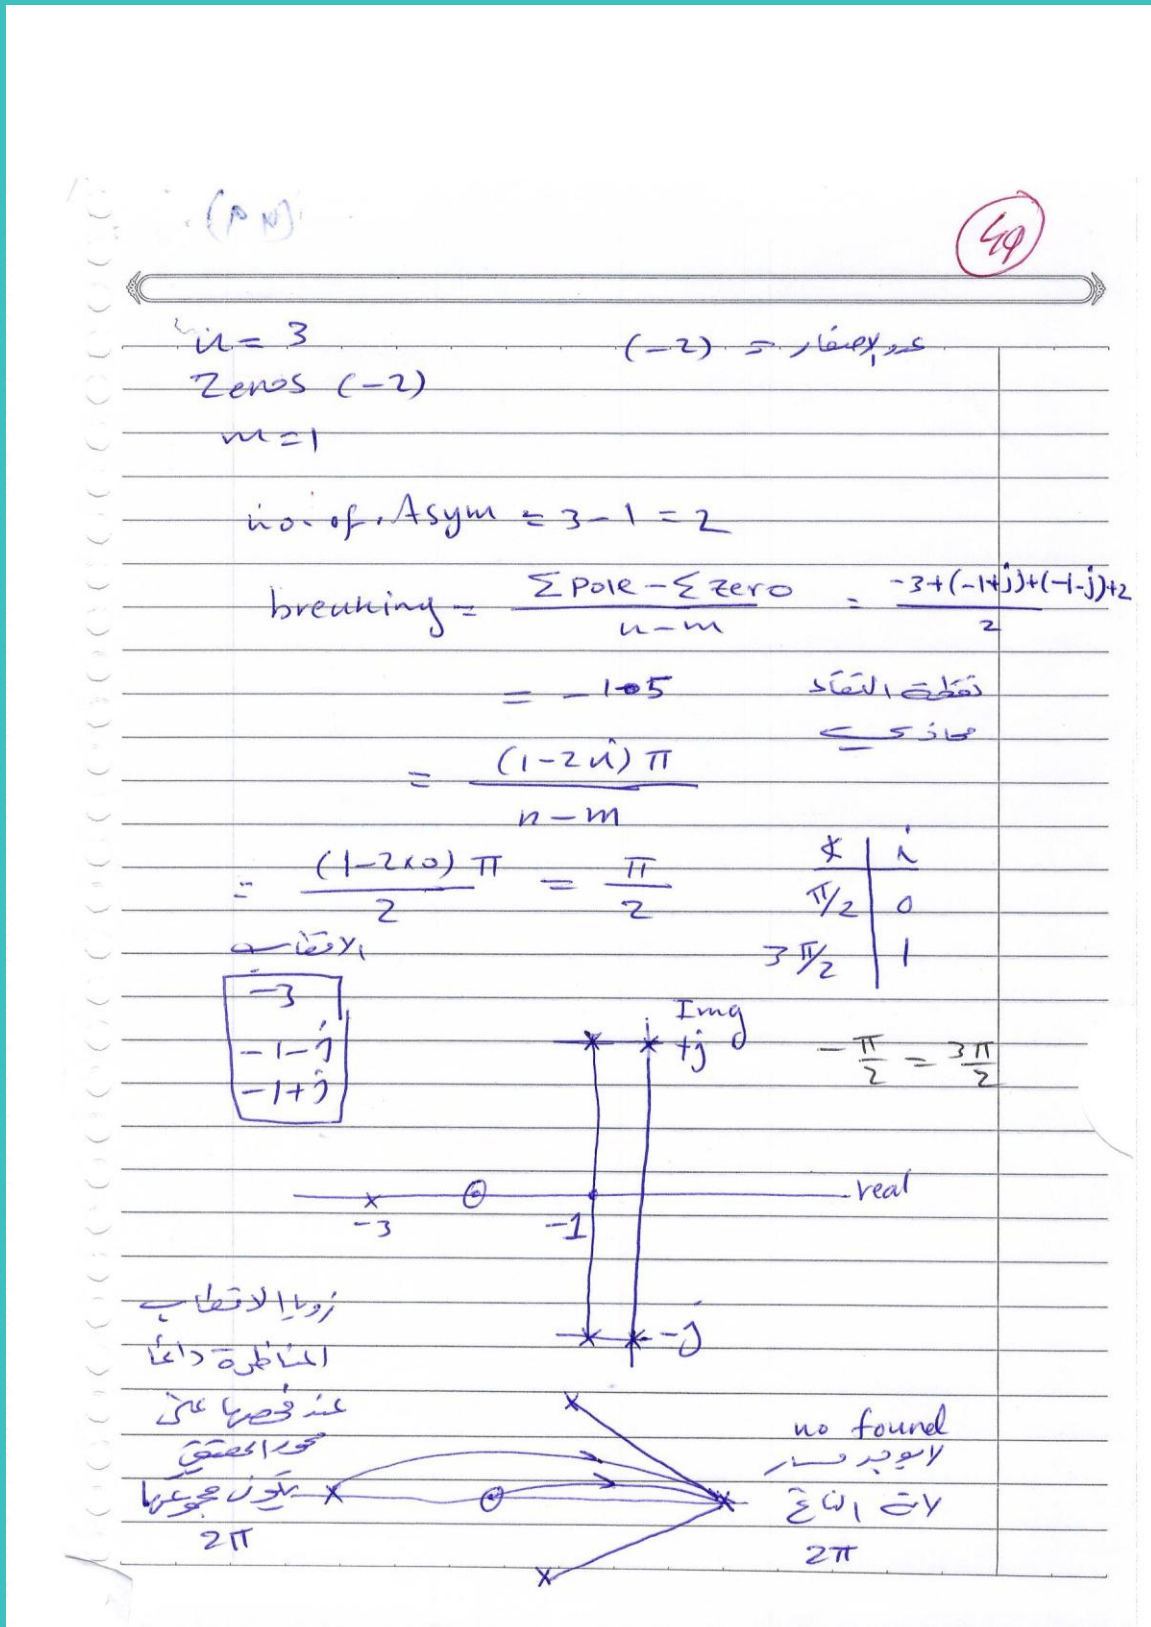 49
n = 3
عدد الاصفار = (-2)
Zeros (-2)
m = 1
no. of. Asym = 3 - 1 = 2
breaking = (Σ pole - Σ zero) / (n - m) = (-3+(-1+j)+(-1-j)+2) / 2
= -1.5 نقطة التقاء
محاذي
= (1-2i) π / (n - m)
= (1-2×0) π / 2 = π / 2
∡ | i
π/2 | 0
3π/2 | 1
الاقطاب
-3
-1-j
-1+j
Img
+j
-π/2 = 3π/2
real
-3
-1
-j
زوايا الاقطاب
المناظرة دائماً
عند فحصها على
محور الحقيقي
يكون مجموعها
2π
no found
لا يوجد مسار
لان الناتج
2π